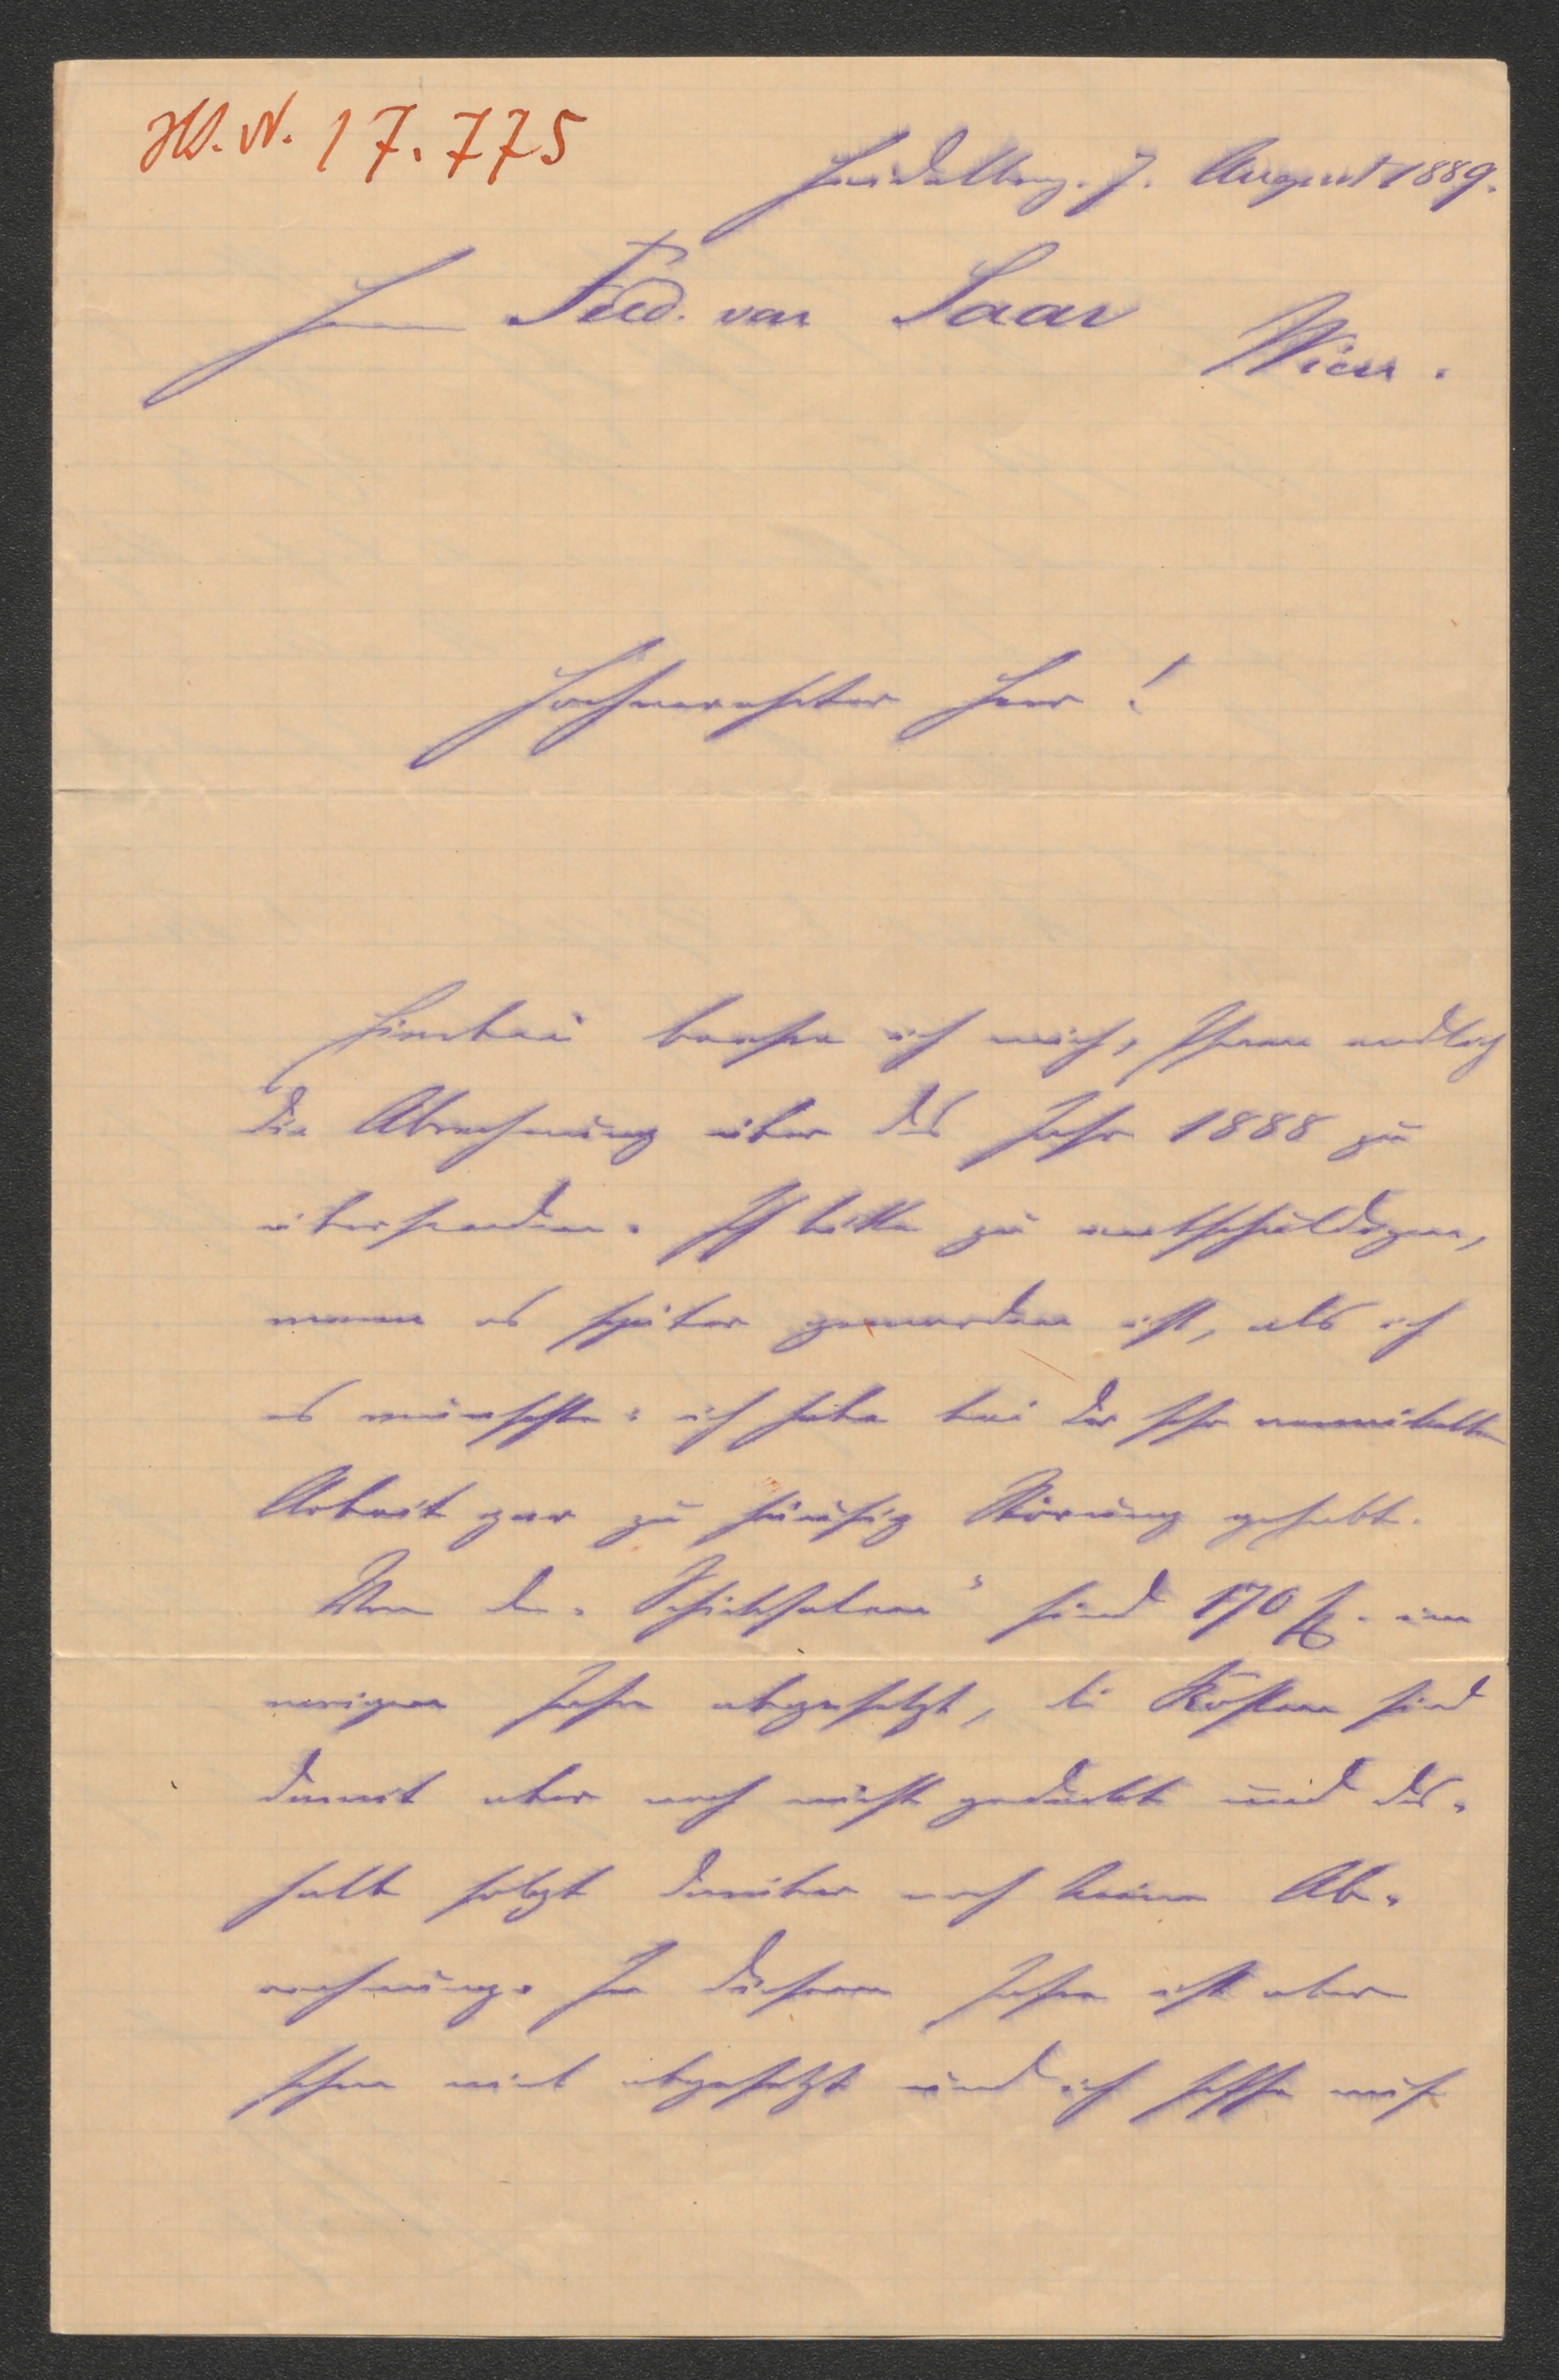 H.I.N. 17.775
Heidelberg. 7. August 1889.
Herrn Ferd. von Saar
Wien.
Hochverehrter Herr!
Hierbei beehre ich mich, Ihnen endlich
die Abrechnung über das Jahr 1888 zu
übersenden. Ich bitte zu entschuldigen,
wenn es später geworden ist, als ich
es wünschte: ich habe bei der sehr verwickelten
Arbeit gar zu häufig Störung gehabt.
Von den „Schicksalen“ sind 170 Ex. im
vorigen Jahre abgesetzt, die Kosten sind
damit aber noch nicht gedeckt und des-
halb folgt darüber noch keine Ab-
rechnung. In diesem Jahre ist aber
schon viel abgesetzt und ich hoffe auf